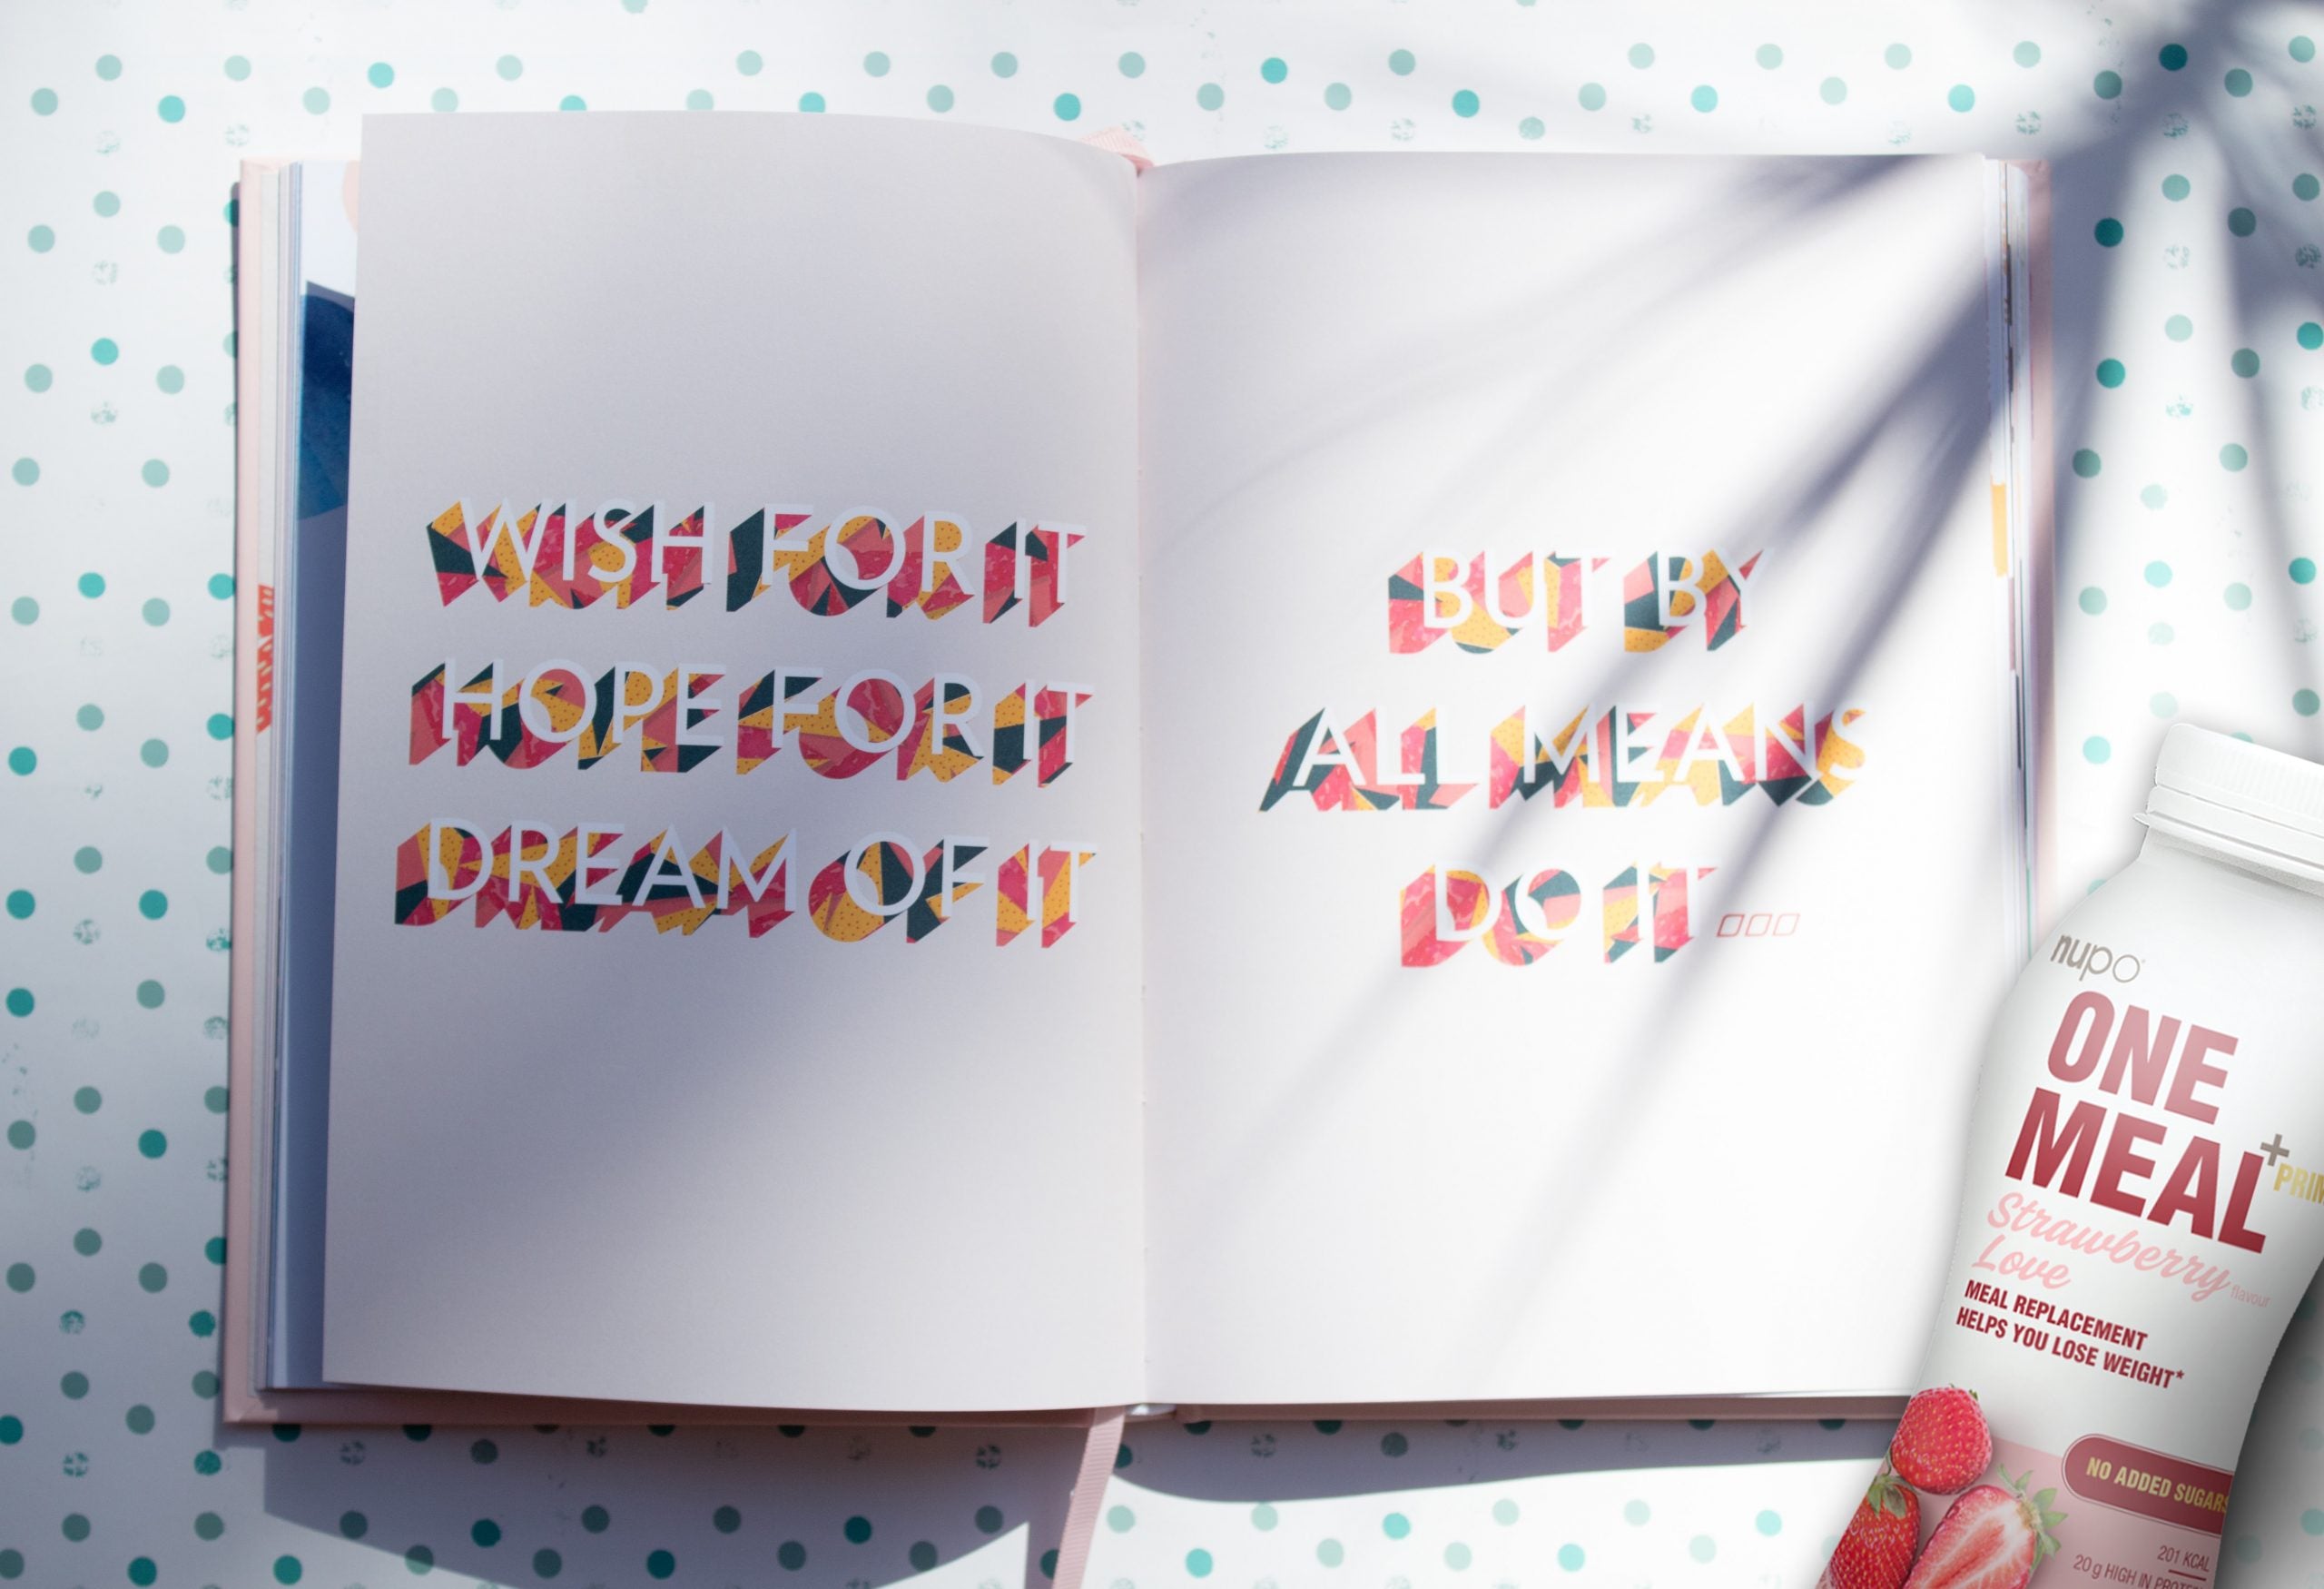 WISH FOR IT
HOPE FOR IT
DREAM OF IT
BUT BY
ALL MEANS
DO IT
nupo
ONE
MEAL
+PRIM
Strawberry
Love flavour
MEAL REPLACEMENT
HELPS YOU LOSE WEIGHT*
NO ADDED SUGARS
201 KCAL
20 g HIGH IN PROT